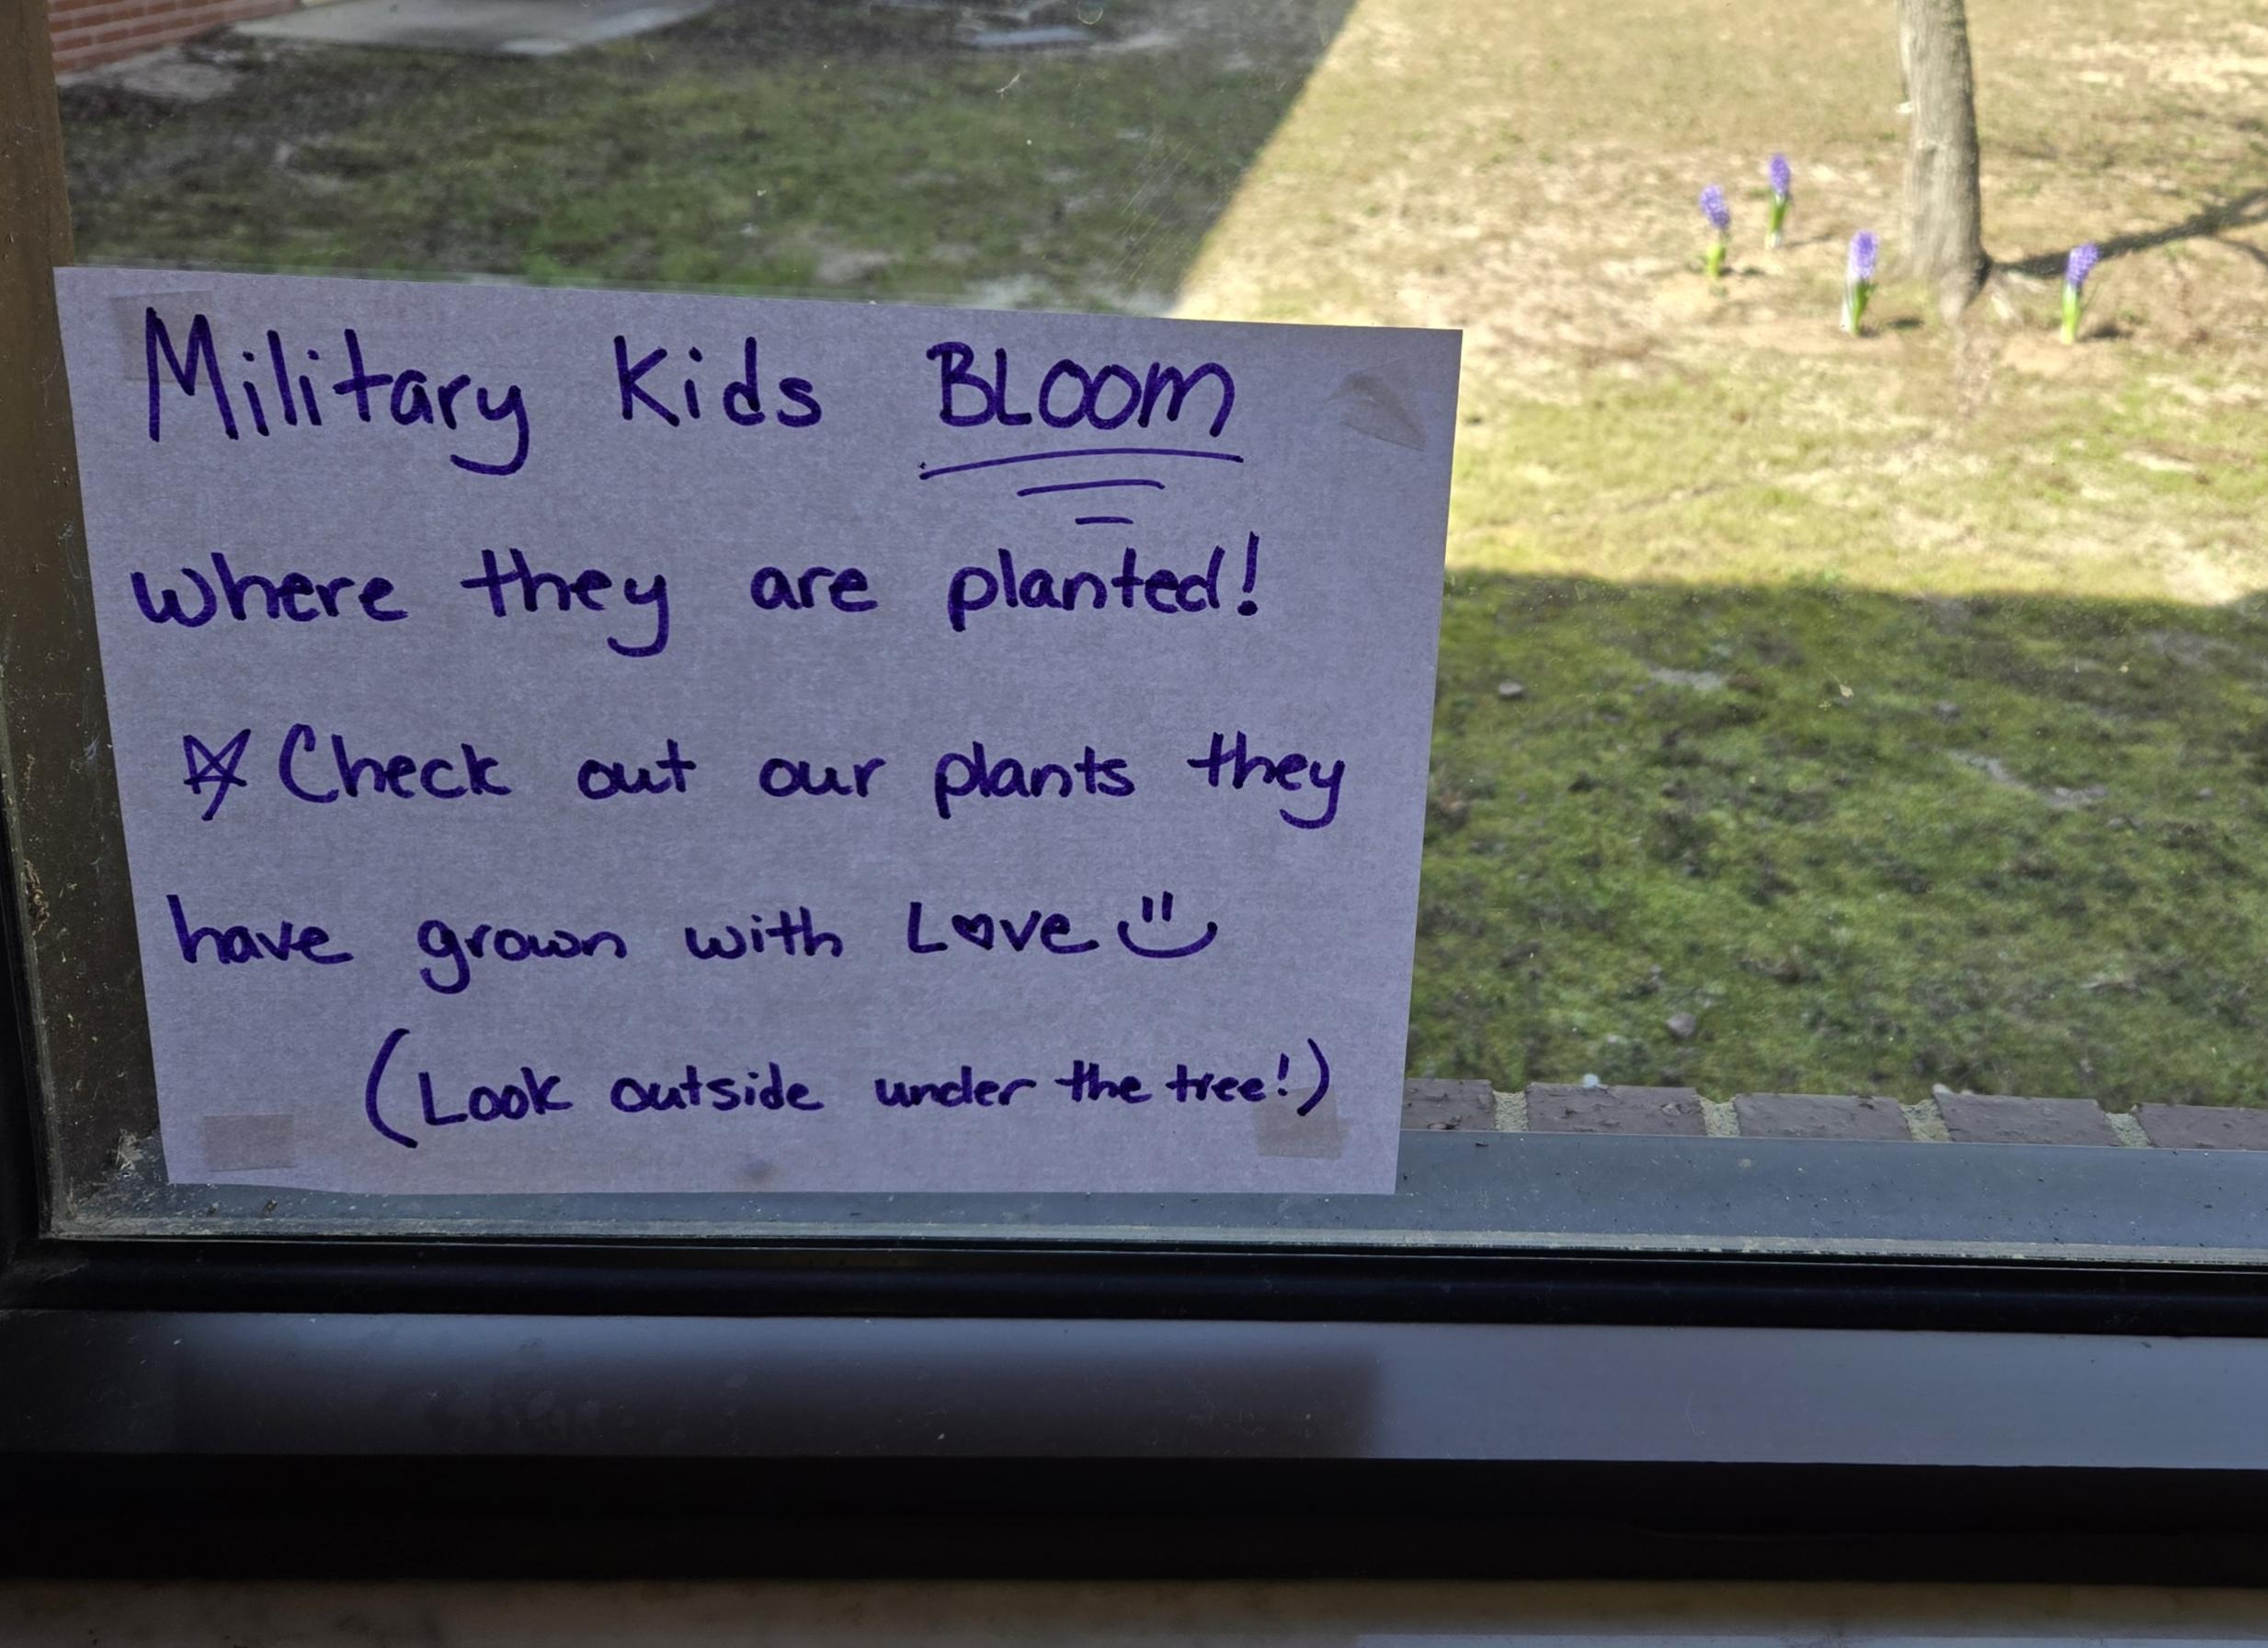 Military Kids BLOOM
where they are planted!
☆ Check out our plants they
have grown with Love
(Look outside under the tree!)